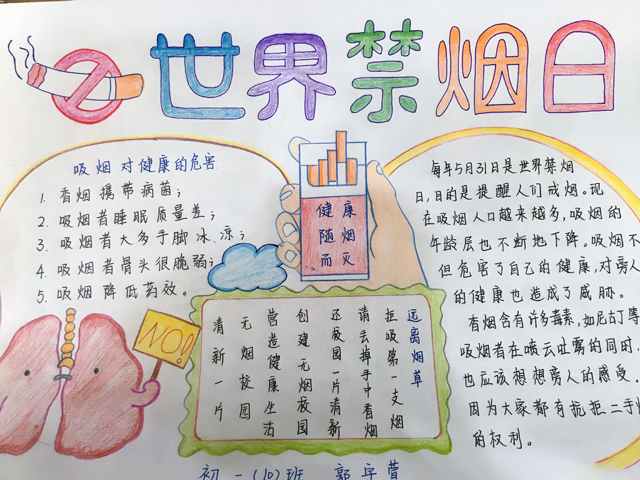 世界禁烟日
吸烟对健康的危害
1. 香烟携带病菌;
2. 吸烟者睡眠质量差;
3. 吸烟者大多手脚冰凉;
4. 吸烟者骨头很脆弱;
5. 吸烟降低药效。
NO!
健康
随烟
而灭
远离烟草
拒吸第一支烟
请丢掉手中香烟
还校园一片清新
创建无烟校园
营造健康生活
无烟校园
清新一片
每年5月31日是世界禁烟
日,目的是提醒人们戒烟。现
在吸烟人口越来越多,吸烟的
年龄层也不断地下降。吸烟不
但危害了自己的健康,对旁人
的健康也造成了威胁。
香烟含有许多毒素,如尼古丁等
吸烟者在喷云吐雾的同时,
也应该想想旁人的感受。
因为大家都有抗拒二手烟
的权利。
初一(10)班 郭